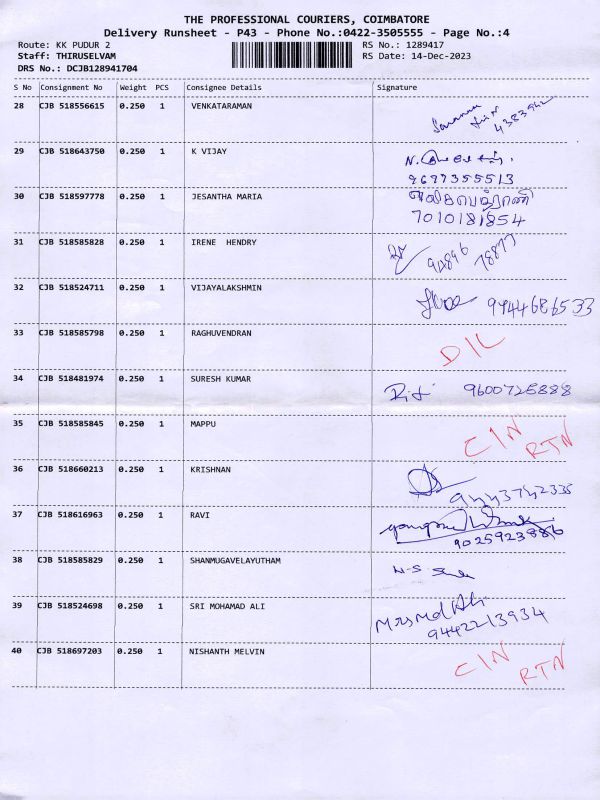 THE PROFESSIONAL COURIERS, COIMBATORE
Delivery Runsheet - P43 - Phone No.:0422-3505555 - Page No.:4
Route: KK PUDUR 2 RS No.: 1289417
Staff: THIRUSELVAM RS Date: 14-Dec-2023
DRS No.: DCJB128941704
S No Consignment No Weight PCS Consignee Details Signature
28 CJB 518556615 0.250 1 VENKATARAMAN
4383942
29 CJB 518643750 0.250 1 K VIJAY
9697355513
30 CJB 518597778 0.250 1 JESANTHA MARIA
7010181854
31 CJB 518585828 0.250 1 IRENE HENDRY
90896 78877
32 CJB 518524711 0.250 1 VIJAYALAKSHMIN 9944686533
33 CJB 518585798 0.250 1 RAGHUVENDRAN
D/L
34 CJB 518481974 0.250 1 SURESH KUMAR 9600725888
35 CJB 518585845 0.250 1 MAPPU
C/N RTN
36 CJB 518660213 0.250 1 KRISHNAN
9443742335
37 CJB 518616963 0.250 1 RAVI
9025923886
38 CJB 518585829 0.250 1 SHANMUGAVELAYUTHAM
39 CJB 518524698 0.250 1 SRI MOHAMAD ALI
Mrs Md Ali
9442213934
40 CJB 518697203 0.250 1 NISHANTH MELVIN
C/N RTN